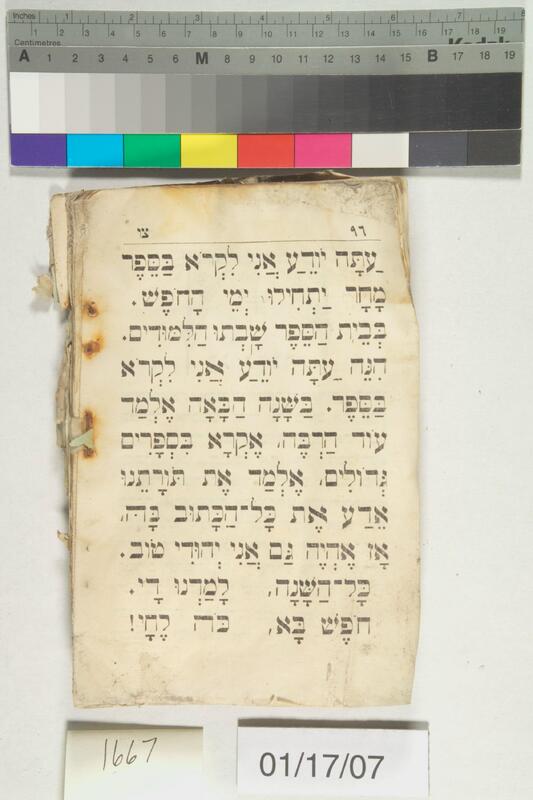 Inches 1 2 3 4 5 6 7 8
1 2 3 4 5 6 7 8 9 10 11 12 13 14 15 16 17 18 19
Centimetres
Kodak
A 1 2 3 4 5 6 M 8 9 10 11 12 13 14 15 B 17 18 19
٩٦ צו
עַתָּה יוֹדֵעַ אֲנִי לִקְרֹא בַּסֵּפֶר
מָחָר יַתְחִילוּ יְמֵי הָחֹפֶשׁ.
בְּבֵית הַסֵּפֶר שָׁבְתוּ הַלִּמּוּדִים.
הִנֵּה עַתָּה יוֹדֵעַ אֲנִי לִקְרֹא
בַּסֵּפֶר. בַּשָּׁנָה הַבָּאָה אֶלְמַד
עוֹד הַרְבֵּה, אֶקְרָא בִּסְפָרִים
גְּדוֹלִים, אֶלְמַד אֶת תּוֹרָתֵנוּ
אֵדַע אֶת כָּל־הַכָּתוּב בָּהּ,
אָז אֶהְיֶה גַּם אֲנִי יְהוּדִי טוֹב.
כָּל־הַשָּׁנָה, לָמַדְנוּ דָי.
חֹפֶשׁ בָּא, כֹּה לֶחָי!
1667
01/17/07